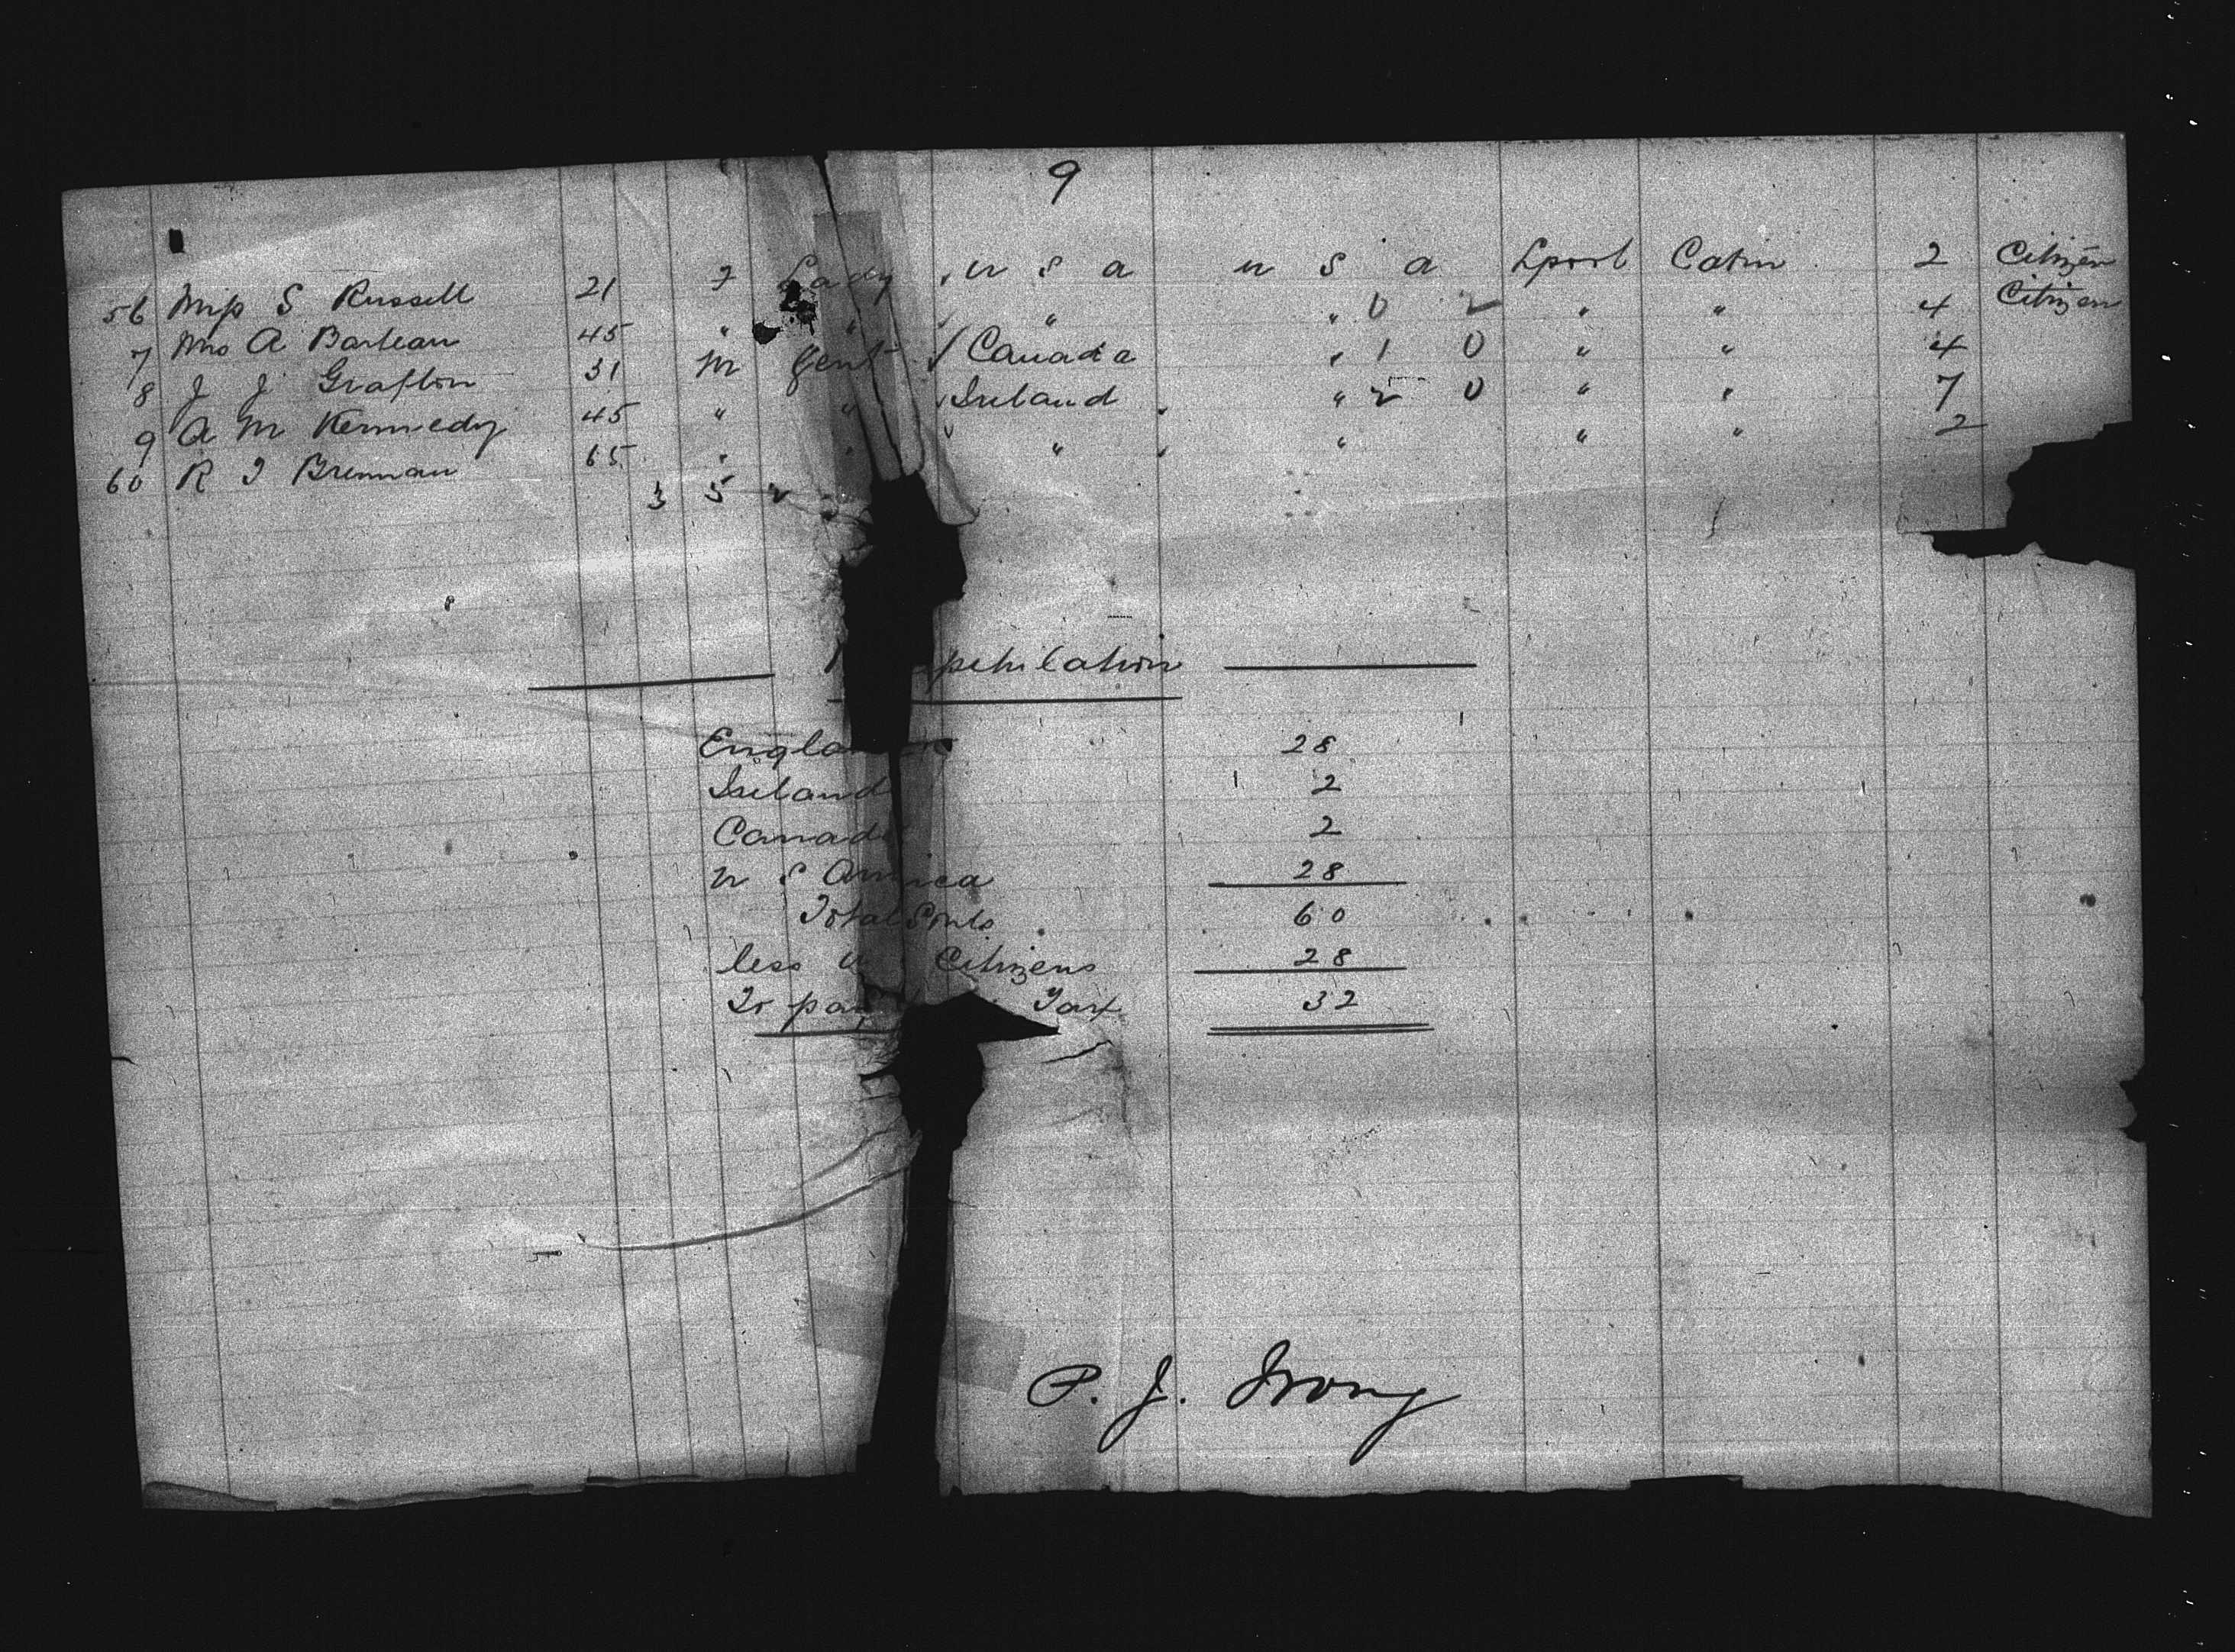 9
56 Miss S Russell 21 F Lady U S A U S A Lpool Cabin 2 Citizen
7 Mrs A Barbeau 45 " " " " 0 2 " " 4 Citizen
8 J J Grafton 31 M Gent Canada " 1 0 " " 4
9 A M Kennedy 45 " " Ireland " 2 0 " " 7
60 R J Brennan 65 " " " " " " 2
3 5 2
pitulation
England 28
Ireland 2
Canada 2
U S America 28
Total Souls 60
less U Citizens 28
To pay Tax 32
P. J. Irong